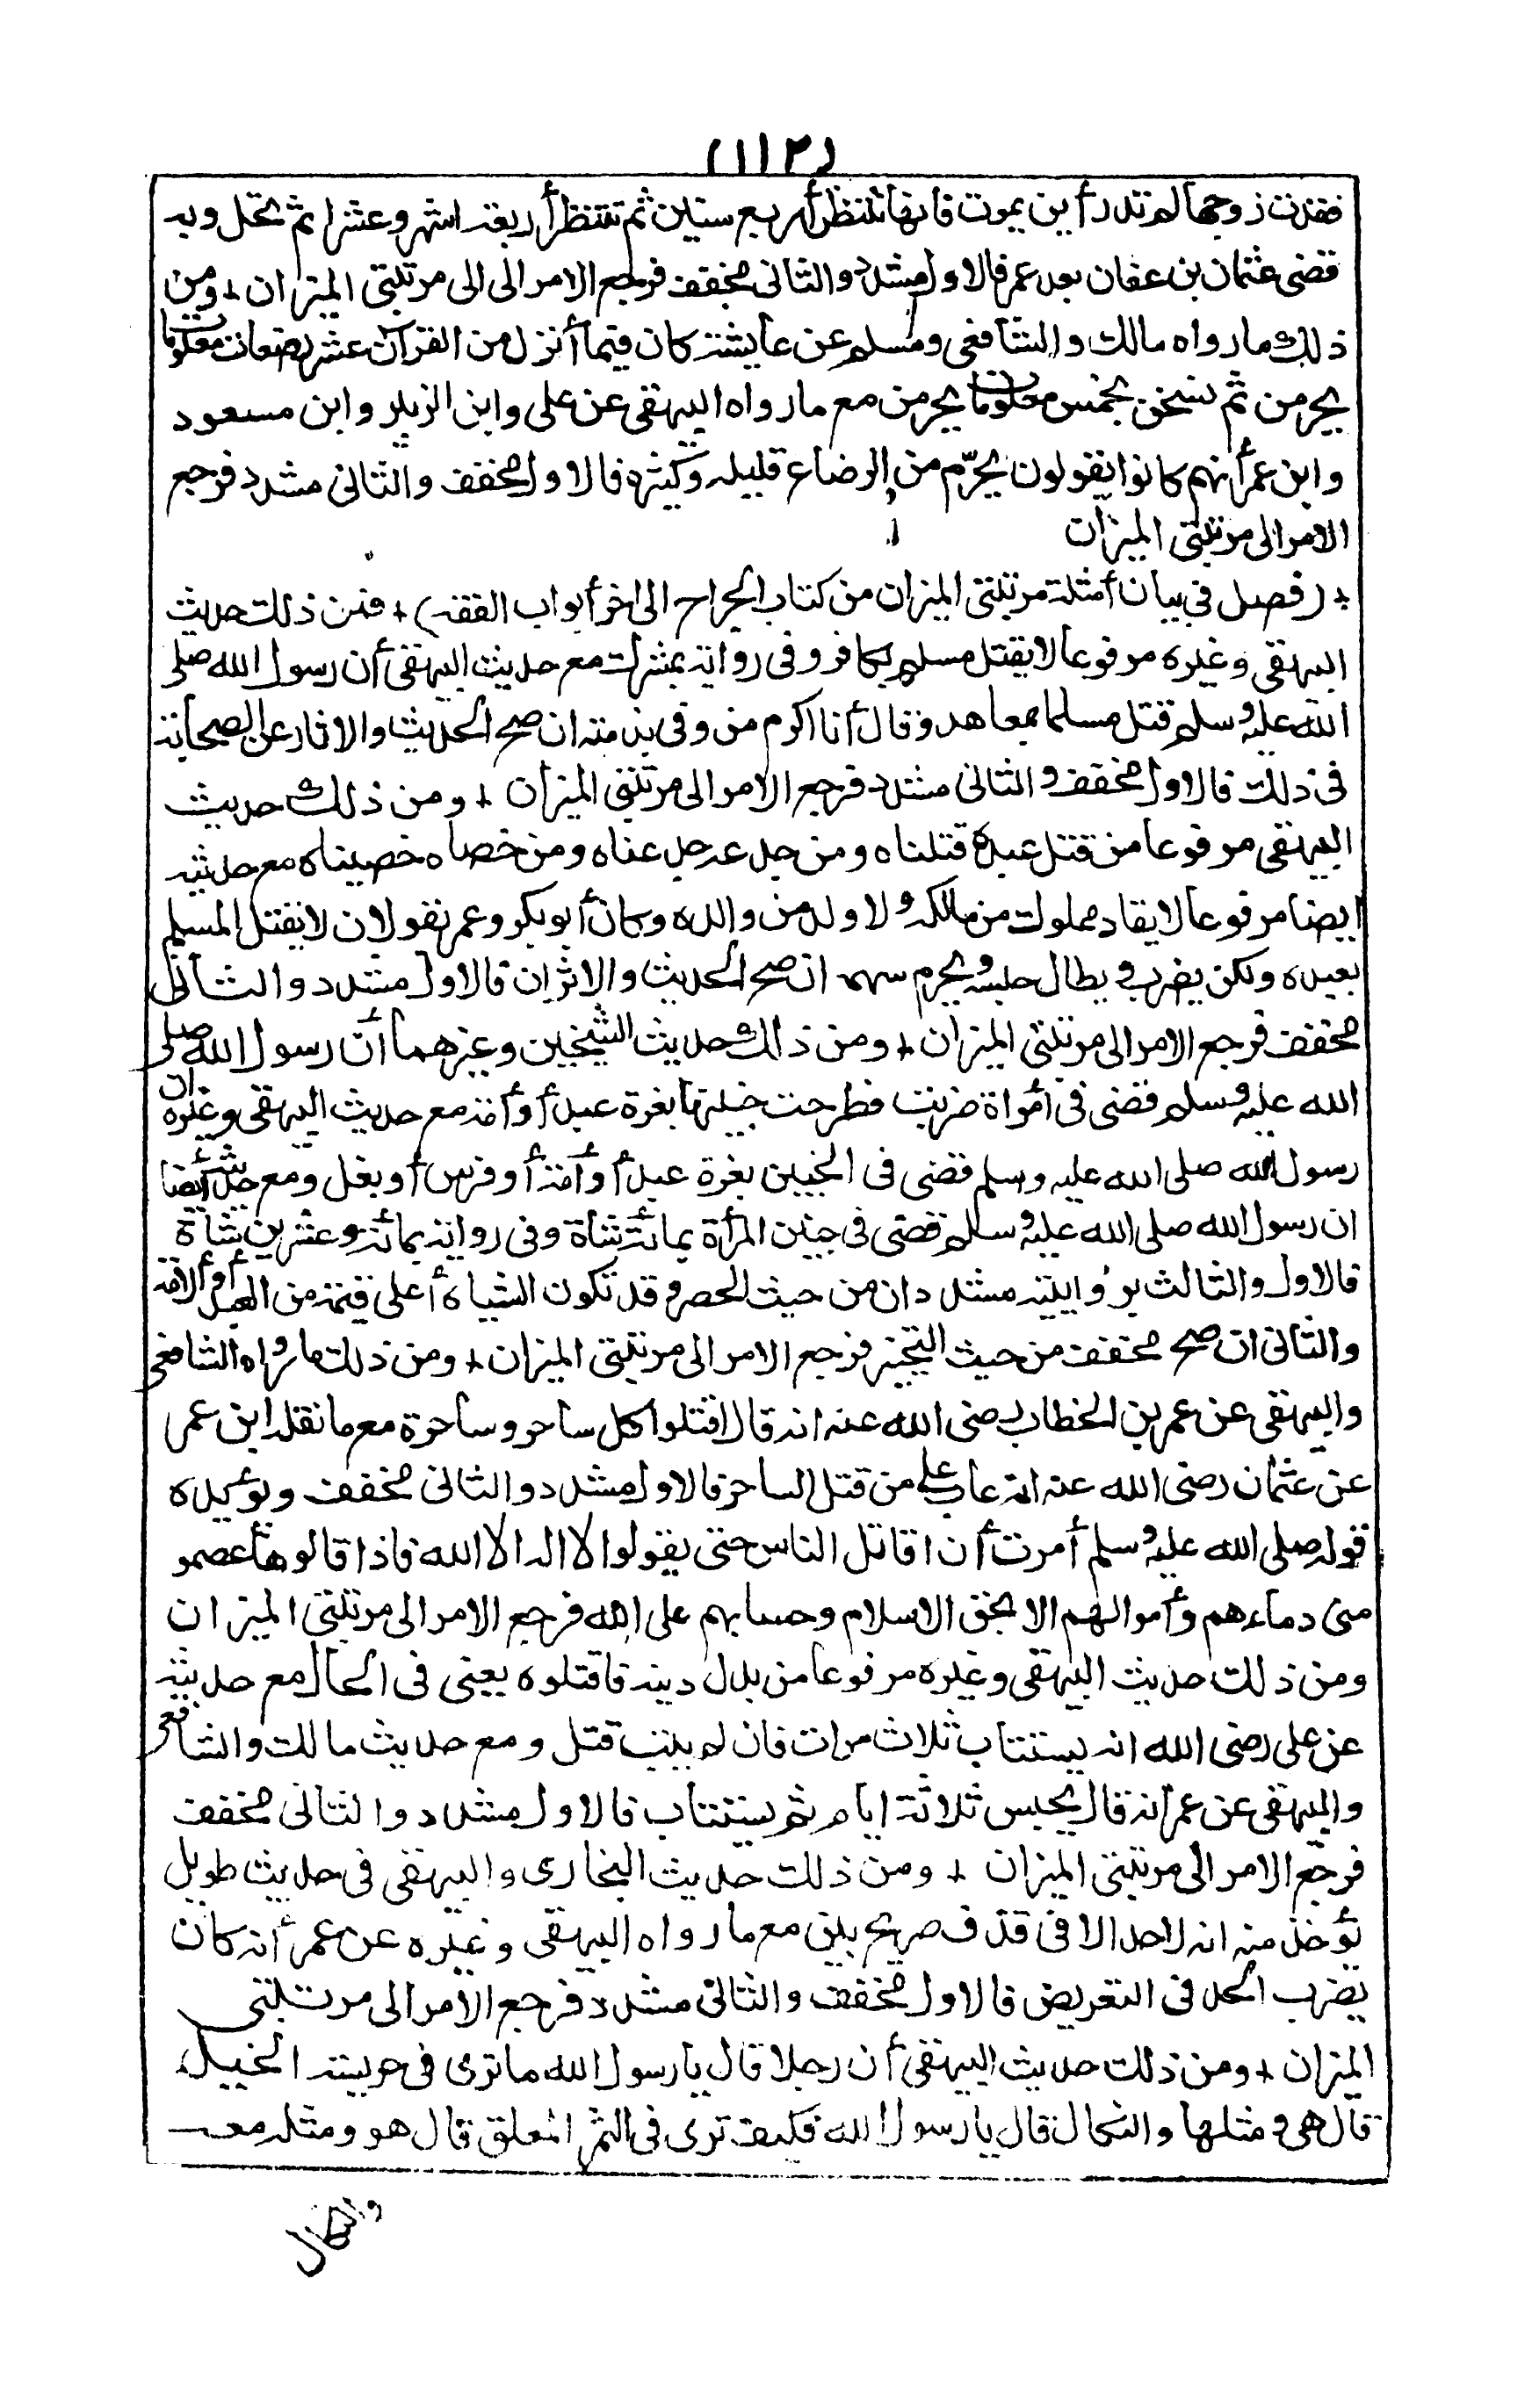 (١١٢)
فقدت زوجها لم تدر أين يموت فانها تنتظر أربع سنين ثم تنتظر أربعة اشهر وعشرا ثم تحل وبه
قضى عثمان بن عفان بعد عمر فالاول مشدد والثانى مخفف فرجع الامر الى الى مرتبتى الميزان + ومن
ذلك ما رواه مالك والشافعى ومسلم عن عايشة كان فيما أنزل من القرآن عشر رضعات معلومات
يحرمن ثم نسخن بخمس معلومات يحرمن مع ما رواه البيهقى عن على وابن الزبير وابن مسعود
وابن عمر أنهم كانوا يقولون يحرّم من الرضاع قليله وكثيره فالاول مخفف والثانى مشدد فرجع
الامر الى مرتبتى الميزان
+ (فصل فى بيان أمثلة مرتبتى الميزان من كتاب الجراح الى اخر أبواب الفقه) + فمن ذلك حديث
البيهقى وغيره مرفوعا لا يقتل مسلم بكافر وفى رواية بمشرك مع حديث البيهقى أن رسول الله صلى
الله عليه وسلم قتل مسلما بمعاهد وقال أنا اكرم من وفى بذمته ان صح الحديث والاثار عن الصحابة
فى ذلك فالاول مخفف والثانى مشدد فرجع الامر الى مرتبتى الميزان + ومن ذلك حديث
البيهقى مرفوعا من قتل عبده قتلناه ومن جدعه جدعناه ومن خصاه خصيناه مع حديثه
ايضا مرفوعا لا يقاد مملوك من مالكه ولا ولد من والده وكان أبو بكر وعمر يقولان لا يقتل المسلم
بعبده ولكن يضرب ويطال حبسه ويحرم سهمه ان صح الحديث والاثران فالاول مشدد والثانى
مخفف فرجع الامر الى مرتبتى الميزان + ومن ذلك حديث الشيخين وغيرهما أن رسول الله صلى
الله عليه وسلم قضى فى أمراة ضربت فطرحت جنينها بغرة عبد أو أمة مع حديث البيهقى وغيره ان
رسول الله صلى الله عليه وسلم قضى فى الجنين بغرة عبد أو أمة أو فرس أو بغل ومع حديثه أيضا
ان رسول الله صلى الله عليه وسلم قضى فى جنين المرأة بمائة شاة وفى رواية بمائة وعشرين شاة
فالاول والثالث بروايتيه مشددان من حيث الحصر وقد تكون الشياه أعلى قيمة من العبد أو الامة
والثانى ان صح مخفف من حيث التخيير فرجع الامر الى مرتبتى الميزان + ومن ذلك ما رواه الشافعى
والبيهقى عن عمر بن الخطاب رضى الله عنه انه قال اقتلوا كل ساحر وساحرة مع ما نقله ابن عمر
عن عثمان رضى الله عنه انه عاب على من قتل الساحر فالاول مشدد والثانى مخفف ويؤيده
قوله صلى الله عليه وسلم أمرت أن اقاتل الناس حتى يقولوا لا اله الا الله فاذا قالوها عصمو
منى دماءهم وأموالهم الا بحق الاسلام وحسابهم على الله فرجع الامر الى مرتبتى الميزان
ومن ذلك حديث البيهقى وغيره مرفوعا من بدل دينه فاقتلوه يعنى فى الحال مع حديثه
عن على رضى الله انه يستتاب ثلاث مرات فان لم يتب قتل ومع حديث مالك والشافعى
والبيهقى عن عمر انه قال يحبس ثلاثة ايام ثم يستتاب فالاول مشدد والثانى مخفف
فرجع الامر الى مرتبتى الميزان + ومن ذلك حديث البخارى والبيهقى فى حديث طويل
يؤخذ منه انه لا حد الا فى قذف صريح بين مع ما رواه البيهقى وغيره عن عمر أنه كان
يضرب الحد فى التعريض فالاول مخفف والثانى مشدد فرجع الامر الى مرتبتى
الميزان + ومن ذلك حديث البيهقى أن رجلا قال يا رسول الله ما ترى فى حريسة الجبيل
قال هى ومثلها والنكال قال يا رسول الله فكيف ترى فى الثمر المعلق قال هو ومثله معه
والنكال